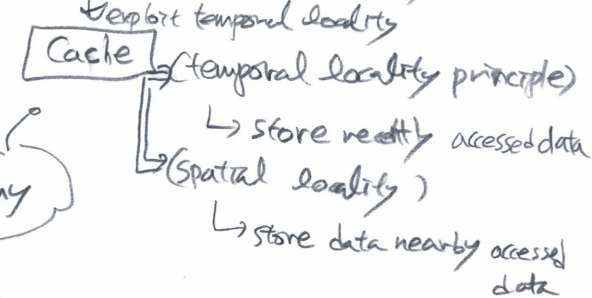 exploit temporal locality
Cache
(temporal locality principle)
store recently accessed data
(spatial locality)
store data nearby accessed
data